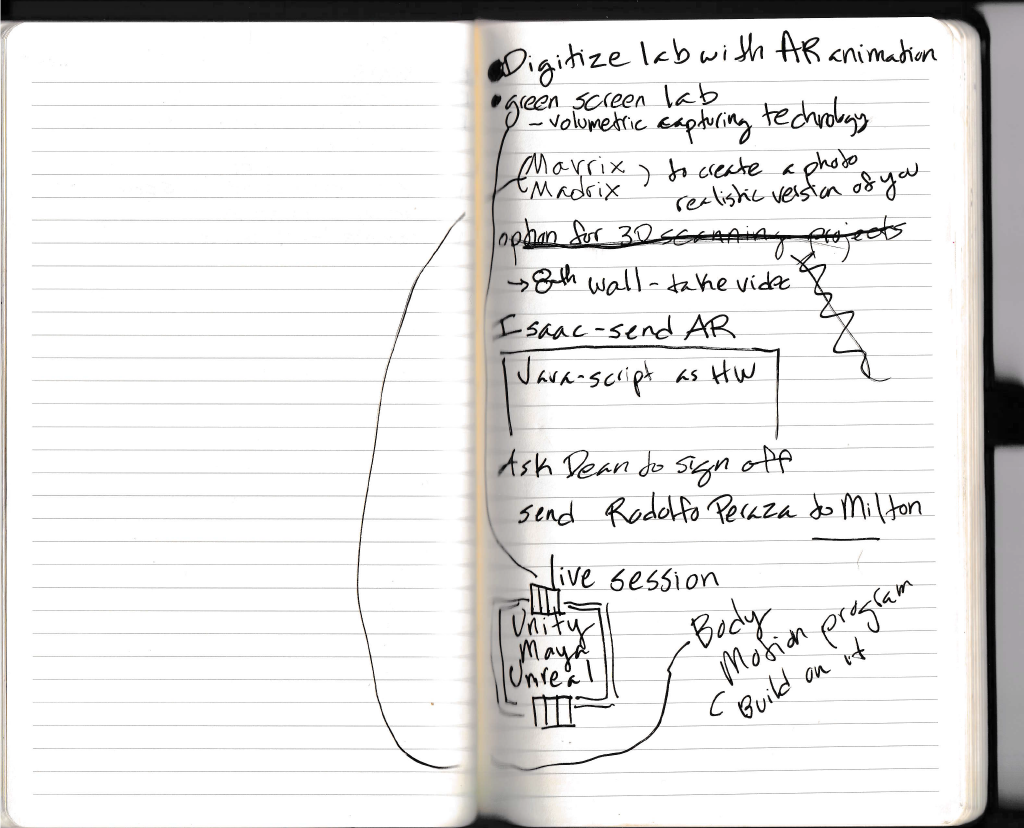 • Digitize lab with AR animation
• green screen lab
- volumetric capturing technology
(Mavrix
Madrix) to create a photo
realistic version of you
option for 3D scanning projects
→ 8th wall - take video
Isaac - send AR
Java-script as HW
Ask Dean to sign off
send Rodolfo Peraza to Milton
live session
Unity
Maya
Unreal
Body
Motion program
( Build on it